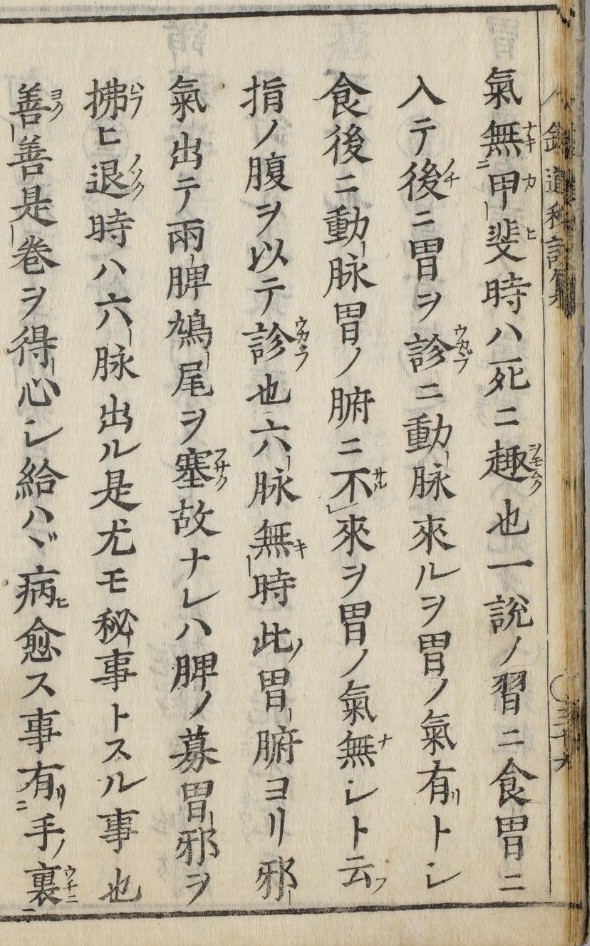 氣無甲斐時ハ死ニ趣也一說ノ習ニ食胃ニ
入テ後ニ胃ヲ診ニ動脉來ルヲ胃ノ氣有トシ
食後ニ動脉胃ノ腑ニ不來ヲ胃ノ氣無シト云
指ノ腹ヲ以テ診也六脉無時此胃腑ヨリ邪
氣出テ兩脾鳩尾ヲ塞故ナレハ脾ノ募胃邪ヲ
拂ヒ退時ハ六脉出ル是尤モ秘事トスル事也
善善是巻ヲ得心シ給ハヾ病愈ス事有手ノ裏